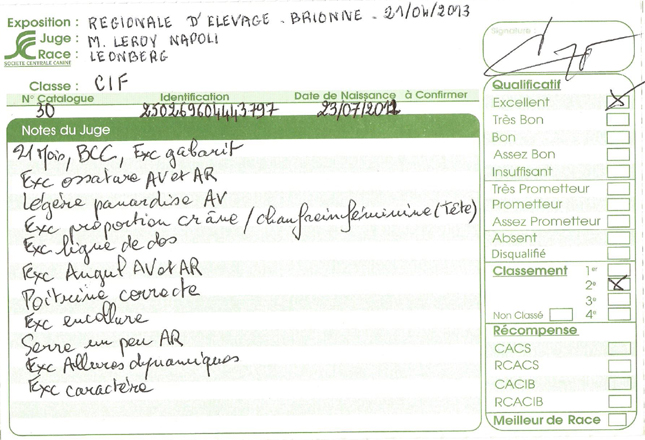 Exposition : REGIONALE D'ELEVAGE - BRIONNE - 21/04/2013
Juge : M. LEROY NAPOLI
Race : LEONBERG
SOCIÉTÉ CENTRALE CANINE
Classe : CIF
N° Catalogue Identification Date de Naissance à Confirmer
30 250269604443797 23/07/2011
Notes du Juge
21 Mois, BCC, Exc gabarit
Exc ossature AV et AR
Légère panardise AV
Exc proportion crâne / chanfrein féminine (Tête)
Exc ligne de dos
Exc Angul AV et AR
Poitrine correcte
Exc encolure
Serre un peu AR
Exc Allures dynamiques
Exc caractère
Signature :
Qualificatif
Excellent X
Très Bon
Bon
Assez Bon
Insuffisant
Très Prometteur
Prometteur
Assez Prometteur
Absent
Disqualifié
Classement 1er
2e X
3e
Non Classé 4e
Récompense
CACS
RCACS
CACIB
RCACIB
Meilleur de Race